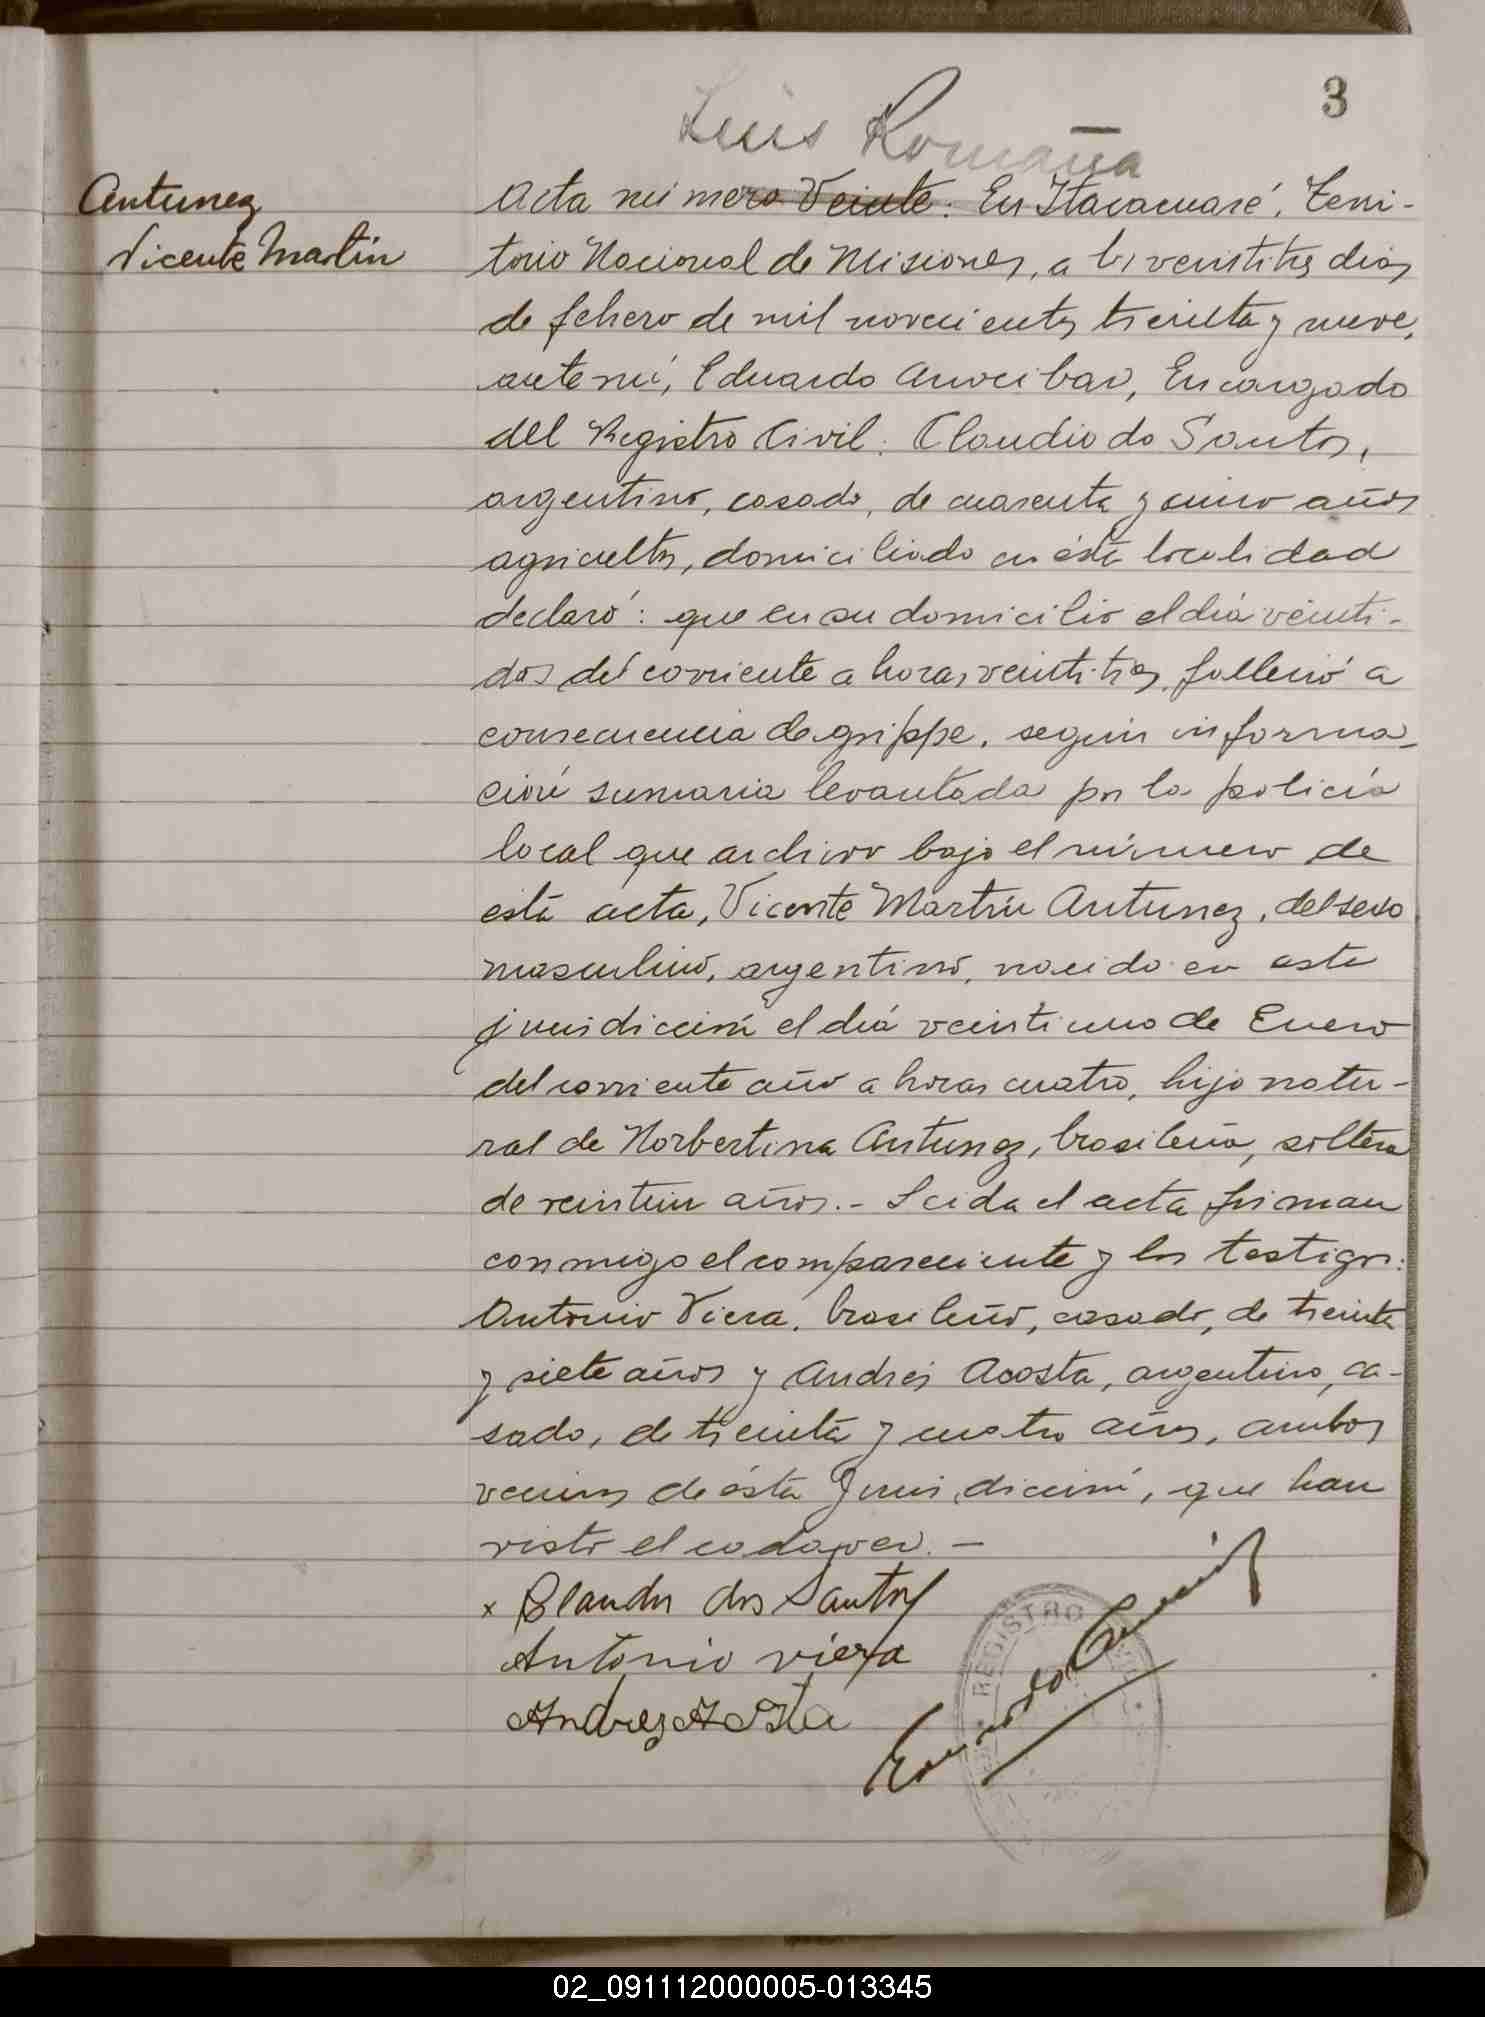 3
Luis Romaña
Antunez
Vicente Martin
Acta número Veinte: En Itacaruaré, Terri-
torio Nacional de Misiones, a los veintitres dias
de febrero de mil novecientos treinta y nueve,
ante mi, Eduardo Encargado
del Registro Civil: Claudio do Santos,
argentino, casado, de cuarenta y cinco años
agricultor, domiciliado en ésta localidad
declaró: que en su domicilio el dia veinti-
dos del corriente a horas veintitres, falleció a
consecuencia de grippe, según informa-
ción sumaria levantada por la policía
local que archivo bajo el número de
esta acta, Vicente Martin Antunez, del sexo
masculino, argentino, nacido en esta
jurisdicción el diá veintiuno de Enero
del corriente año a horas cuatro, hijo natu-
ral de Norbertina Antunez, brasileña, soltera
de veintiun años.- Leida el acta firman
conmigo el compareciente y los testigos:
Antonio Viera, brasileño, casado, de treinta
y siete años y Andrés Acosta, argentino, ca-
sado, de treinta y cuatro años, ambos
vecinos de ésta Jurisdicción, que han
visto el cadaver.-
x Claudio dos Santos
Antonio viera
Andrez Acosta
REGISTRO
Eduardo
02_091112000005-013345